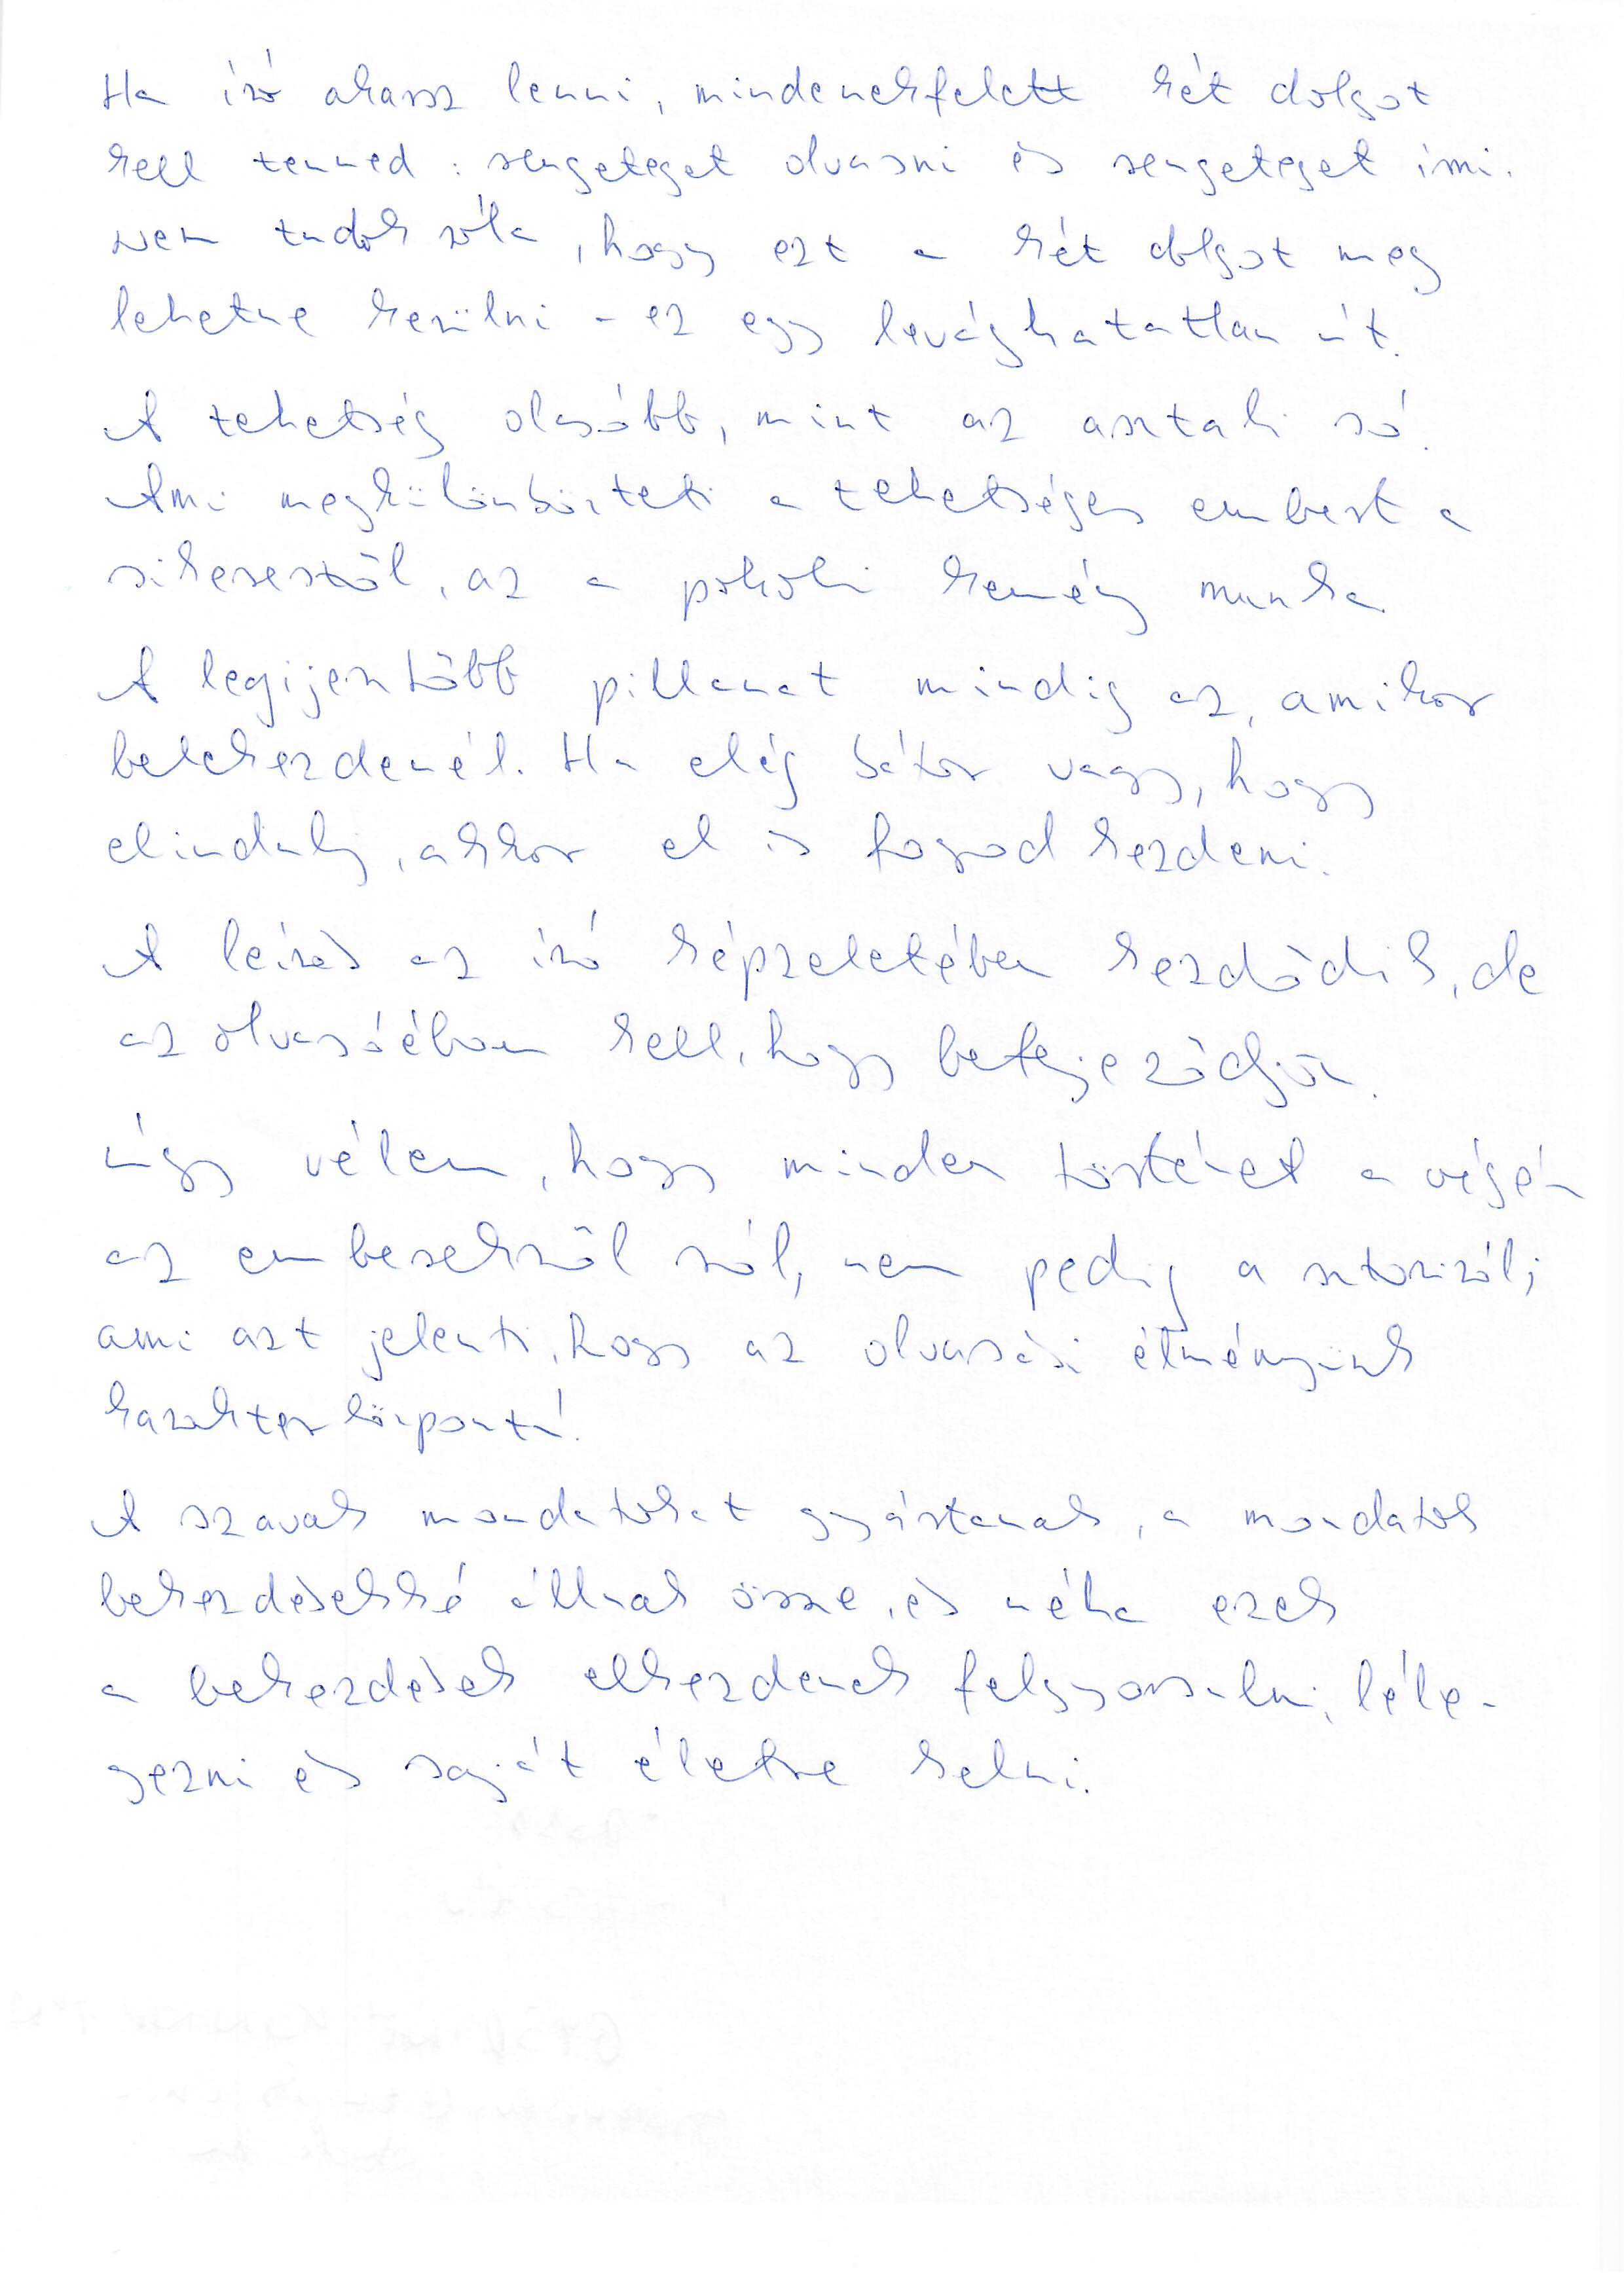 Ha író akarsz lenni, mindenekfelett két dolgot
kell tenned: rengeteget olvasni és rengeteget írni.
Nem tudok róla, hogy ezt a két dolgot meg
lehetne kerülni - ez egy levághatatlan út.
A tehetség olcsóbb, mint az asztali só.
Ami megkülönbözteti a tehetséges embert a
sikerestől, az a pokoli kemény munka.
A legijesztőbb pillanat mindig az, amikor
belekezdenél. Ha elég bátor vagy, hogy
elindulj, akkor el is fogod kezdeni.
A leírás az író képzeletében kezdődik, de
az olvasóéban kell, hogy befejeződjön.
Úgy vélem, hogy minden történet a végén
az emberekről szól, nem pedig a sztoriról;
ami azt jelenti, hogy az olvasási élményünk
karakterközpontú!
A szavak mondatokat gyártanak, a mondatok
bekezdésekké állnak össze, és néha ezek
a bekezdések elkezdenek felgyorsulni, léle-
gezni és saját életre kelni.